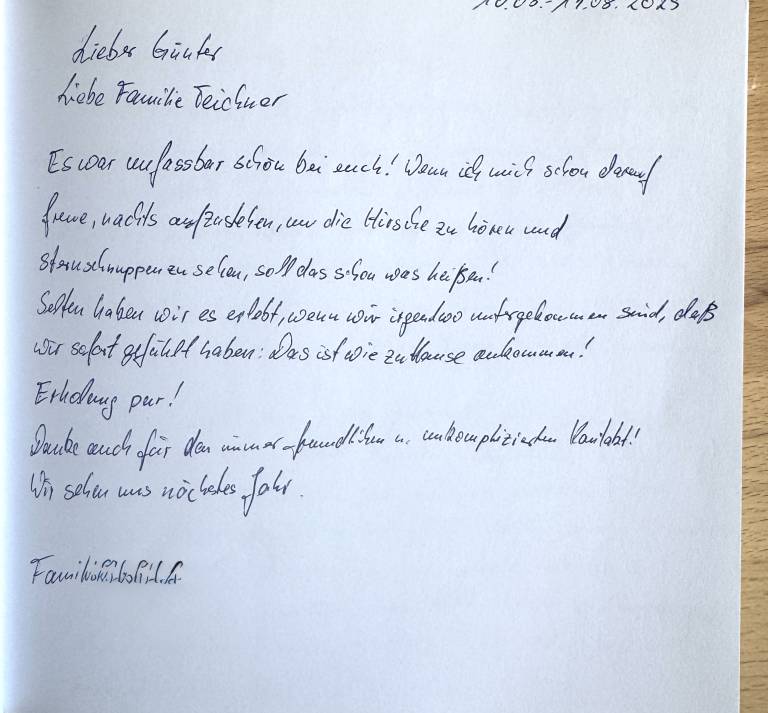 Lieber Günter
Liebe Familie Teichner
Es war unfassbar schön bei euch! Wenn ich mich schon darauf
freue, nachts aufzustehen, um die Hirsche zu hören und
Sternschnuppen zu sehen, soll das schon was heißen!
Selten haben wir es erlebt, wenn wir irgendwo untergekommen sind, daß
wir sofort gefühlt haben: Das ist wie zu Hause ankommen!
Erholung pur!
Danke auch für den immer freundlichen u. unkomplizierten Kontakt!
Wir sehen uns nächstes Jahr.